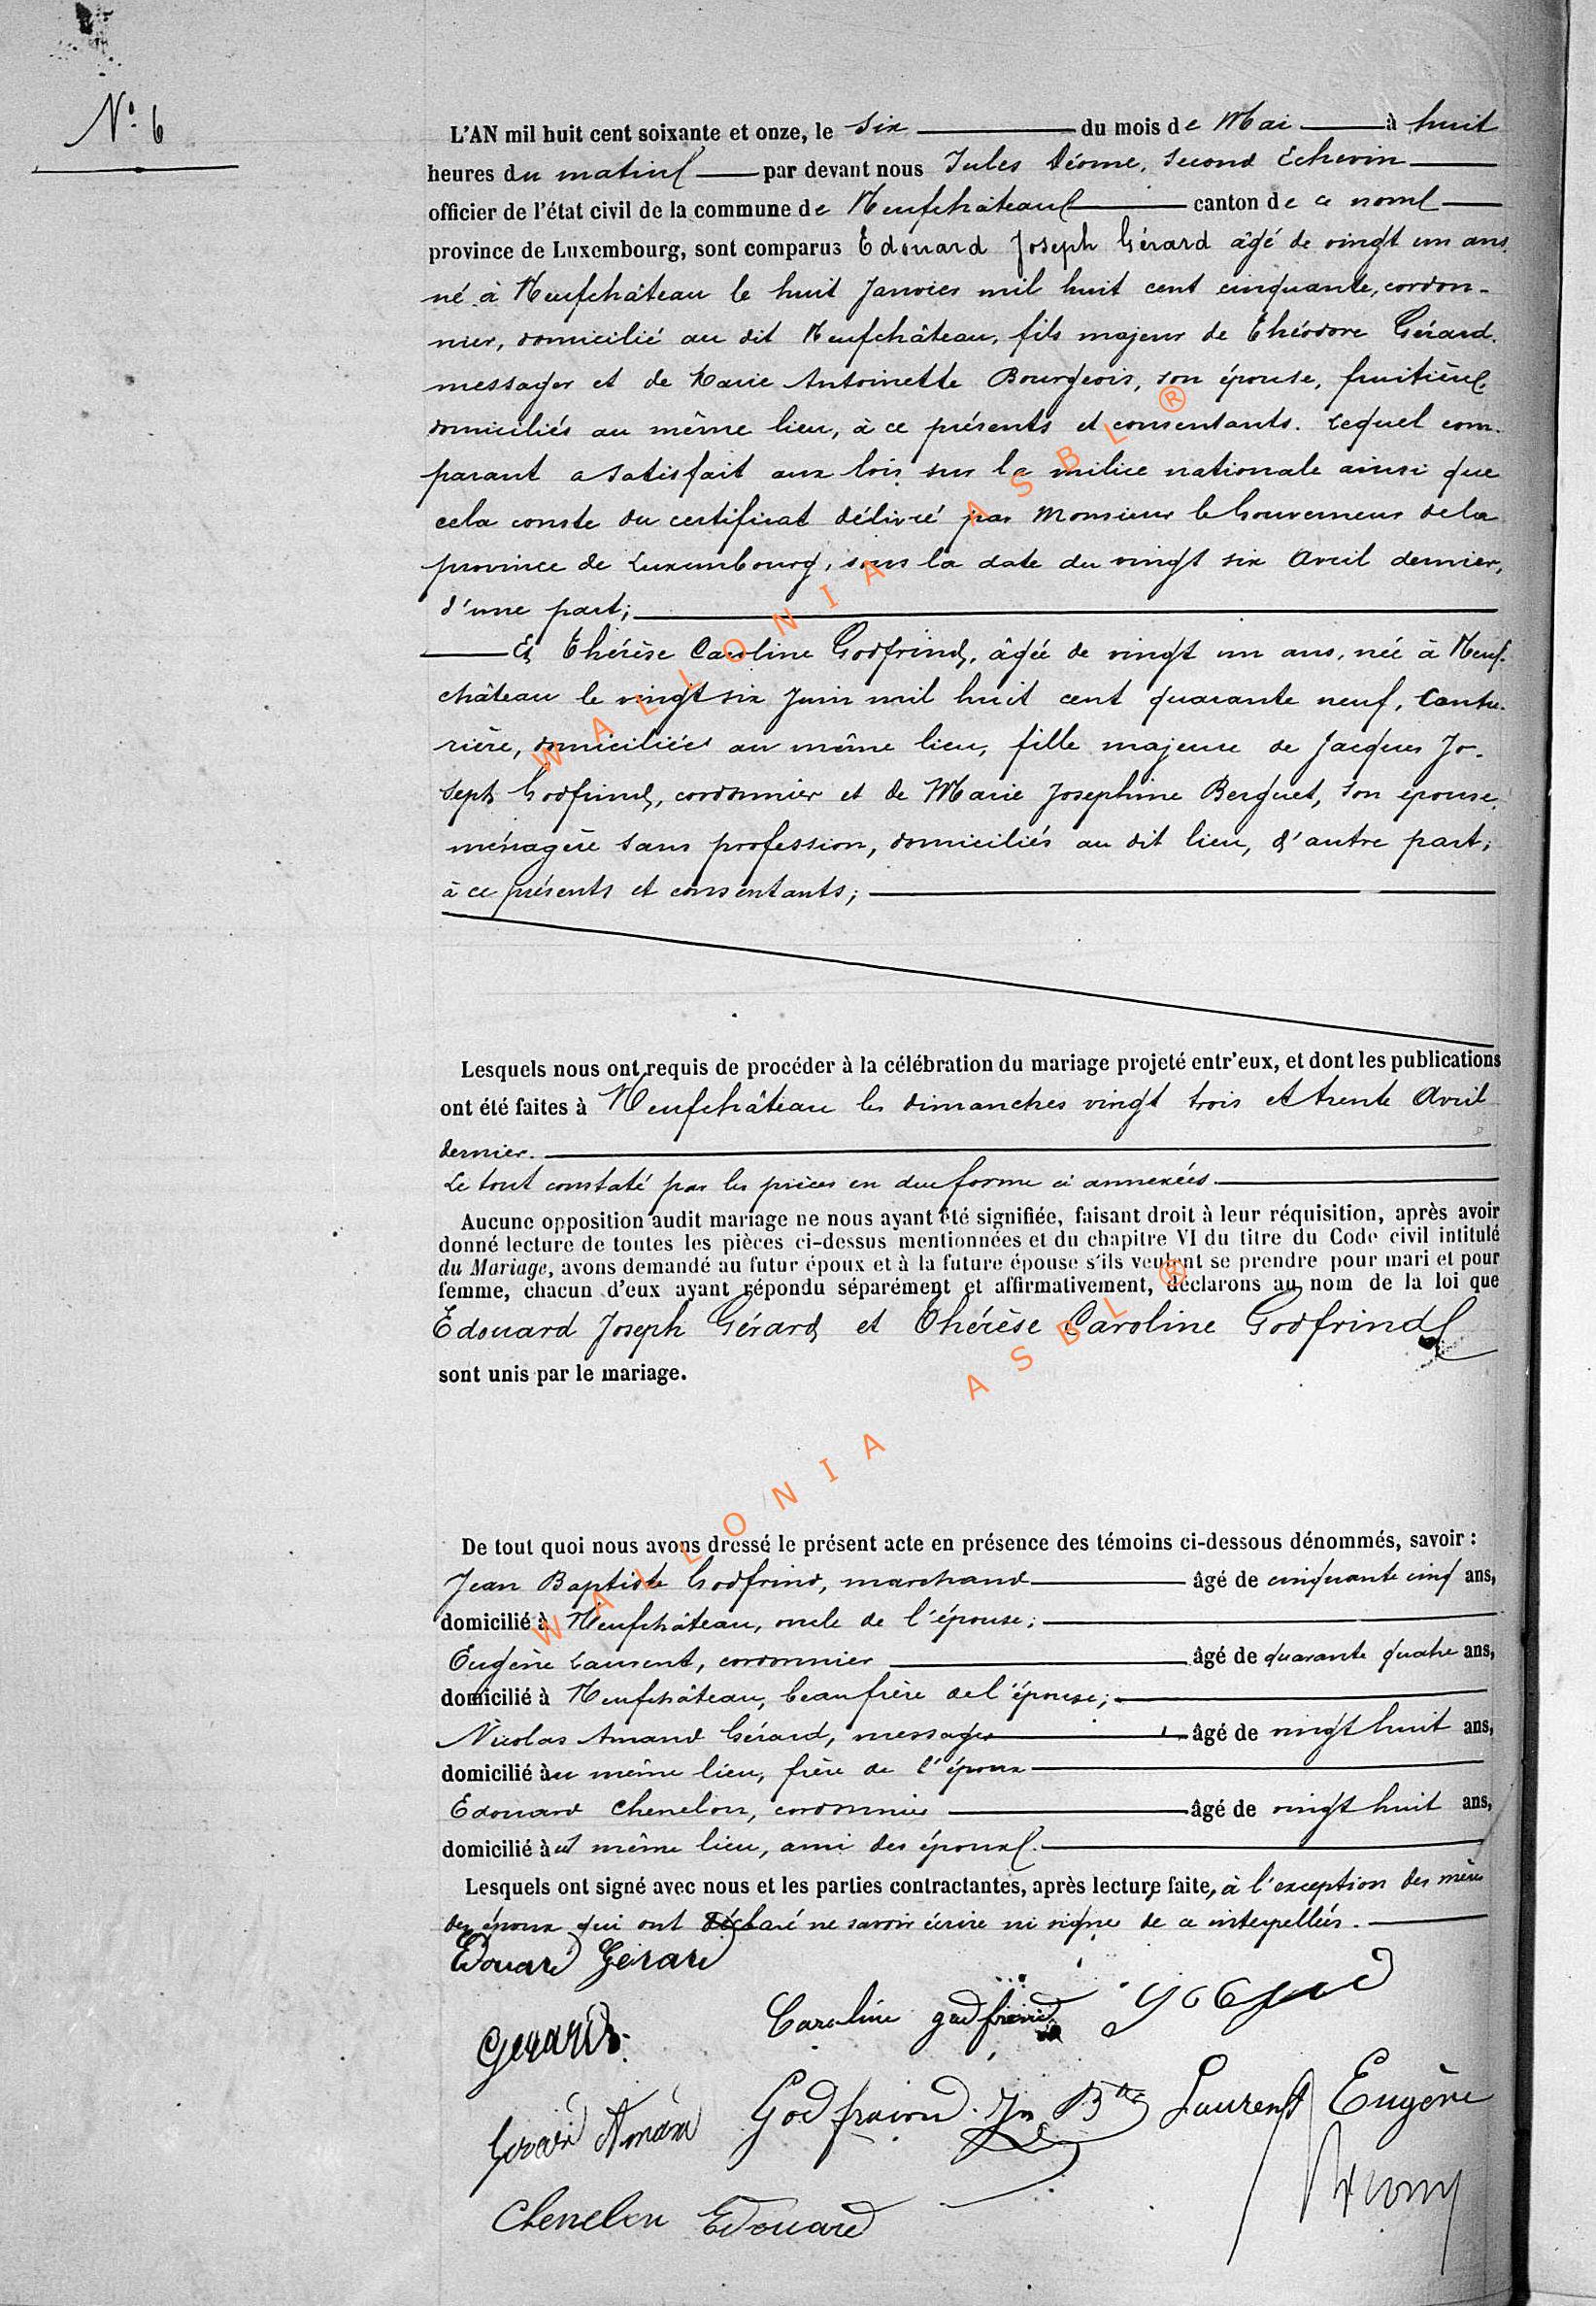 N° 6
L'AN mil huit cent soixante et onze, le six du mois de Mai à huit
heures du matin par devant nous Jules Déome, second Echevin
officier de l'état civil de la commune de Neufchâteau canton de ce nom
province de Luxembourg, sont comparus Edouard Joseph Gérard âgé de vingt un ans
né à Neufchâteau le huit Janvier mil huit cent cinquante, cordon-
nier, domicilié au dit Neufchâteau, fils majeur de Théodore Gérard.
messager et de Marie Antoinette Bourgeois, son épouse, fruitière
domiciliés au même lieu, à ce présents et consentants. Lequel com-
parant a satisfait aux lois sur la milice nationale ainsi que
cela conste du certificat délivré par Monsieur le Gouverneur de la
province de Luxembourg, sous la date du vingt six Avril dernier,
d'une part;
Et Thérèse Caroline Godfrind, âgée de vingt un ans, née à Neuf-
château le vingt six Juin mil huit cent quarante neuf, Coutu-
rière, domiciliée au même lieu, fille majeure de Jacques Jo-
seph Godfrind, cordonnier et de Marie Josephine Berguet, son épouse,
ménagère sans profession, domiciliés au dit lieu, d'autre part;
à ce présents et consentants;
Lesquels nous ont requis de procéder à la célébration du mariage projeté entr'eux, et dont les publications
ont été faites à Neufchâteau les dimanches vingt trois et trente Avril
dernier.
Le tout constaté par les pièces en due forme ci annexées
Aucune opposition audit mariage ne nous ayant été signifiée, faisant droit à leur réquisition, après avoir
donné lecture de toutes les pièces ci-dessus mentionnées et du chapitre VI du titre du Code civil intitulé
du Mariage, avons demandé au futur époux et à la future épouse s'ils veulent se prendre pour mari et pour
femme, chacun d'eux ayant répondu séparément et affirmativement, déclarons au nom de la loi que
Edouard Joseph Gérard et Thérèse Caroline Godfrind
sont unis par le mariage.
De tout quoi nous avons dressé le présent acte en présence des témoins ci-dessous dénommés, savoir :
Jean Baptiste Godfrind, marchand âgé de cinquante cinq ans,
domicilié à Neufchâteau, oncle de l'épouse;
Eugène Laurent, cordonnier âgé de quarante quatre ans,
domicilié à Neufchâteau, beau frère de l'épouse;
Nicolas Amand Gérard, messager âgé de vingt huit ans,
domicilié au même lieu, frère de l'époux
Edouard Chenelon, cordonnier âgé de vingt huit ans,
domicilié au même lieu, ami des époux.
Lesquels ont signé avec nous et les parties contractantes, après lecture faite, à l'exception des mères
des époux qui ont déclaré ne savoir écrire ni signer de ce interpellées.
Edouard Gérard
Caroline godfrind
Gerard
Gerard Amand
Godfraind Jn Bte
Laurent Eugène
Chenelon Edouard
WALLONIA ASBL ®
WALLONIA ASBL ®